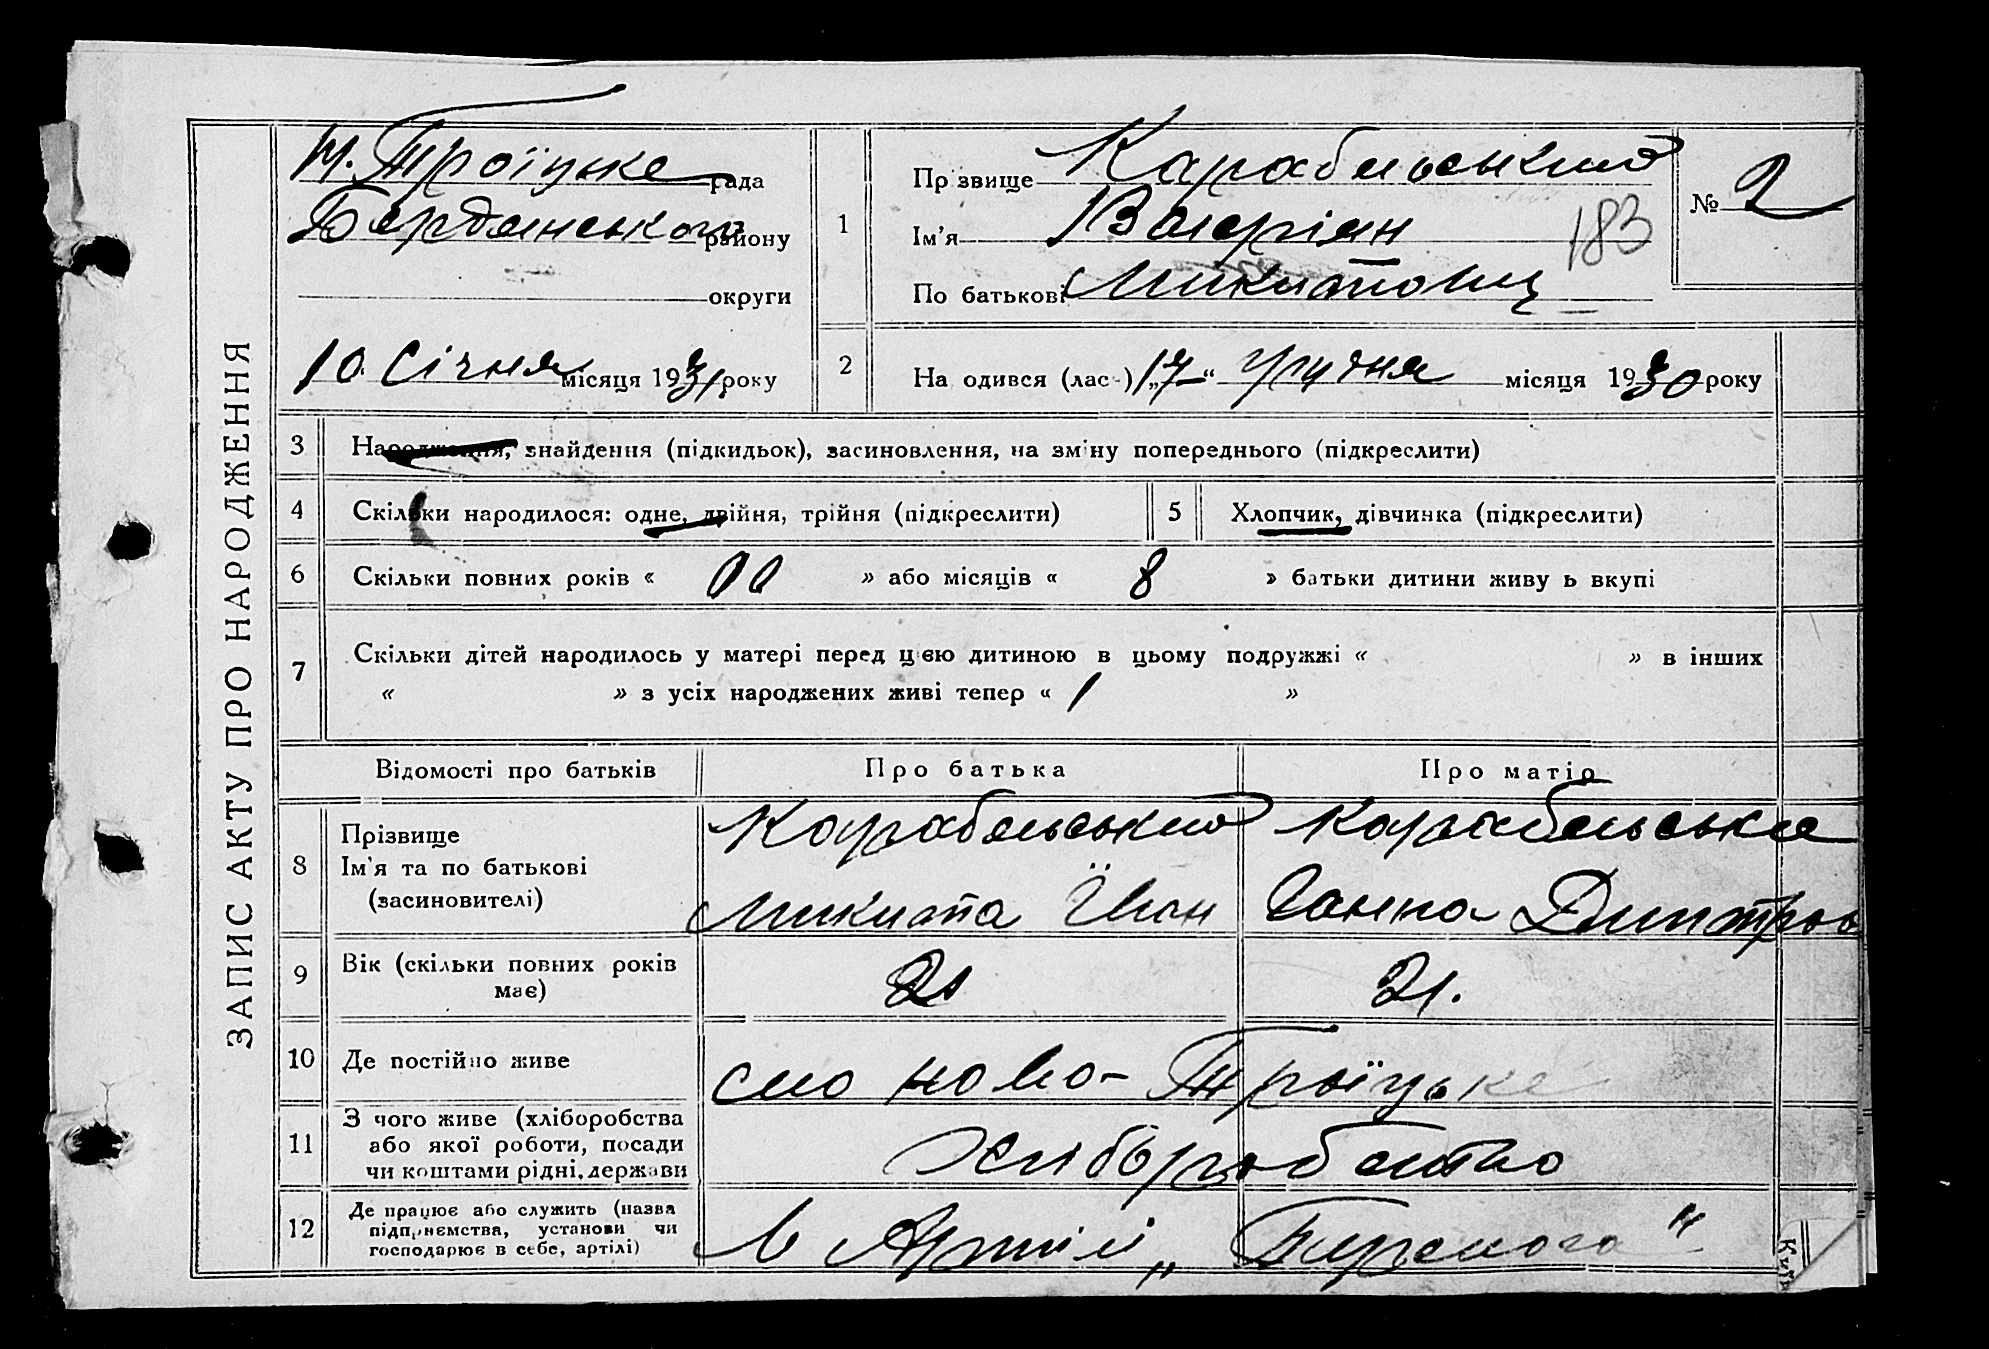 ЗАПИС АКТУ ПРО НАРОДЖЕННЯ
Н. Троїцьке рада
Бердянського району
округи
10 Січня місяця 1931 року
1
Прізвище Карабельський
Ім'я Валеріян
По батькові Микитович
183
№ 2
2
На одився (лас-) „17“ Грудня місяця 1930 року
3 Народження, знайдення (підкидьок), засиновлення, на зміну попереднього (підкреслити)
4 Скільки народилося: одне, двійня, трійня (підкреслити)
5 Хлопчик, дівчинка (підкреслити)
6 Скільки повних років « 00 » або місяців « 8 » батьки дитини живу ь вкупі
7 Скільки дітей народилось у матері перед цією дитиною в цьому подружжі « » в інших
« » з усіх народжених живі тепер « 1 »
Відомості про батьків Про батька Про матір
8 Прізвище
Ім'я та по батькові
(засиновителі)
Карабельський
Микита Іван
Карабельська
Ганна Дмитров
9 Вік (скільки повних років
має)
21 21.
10 Де постійно живе
село Ново-Троїцьке
11 З чого живе (хліборобства
або якої роботи, посади
чи коштами рідні, держави
Хліборобство
12 Де працює або служить (назва
підприємства, установи чи
господарює в себе, артілі)
В Артілі „